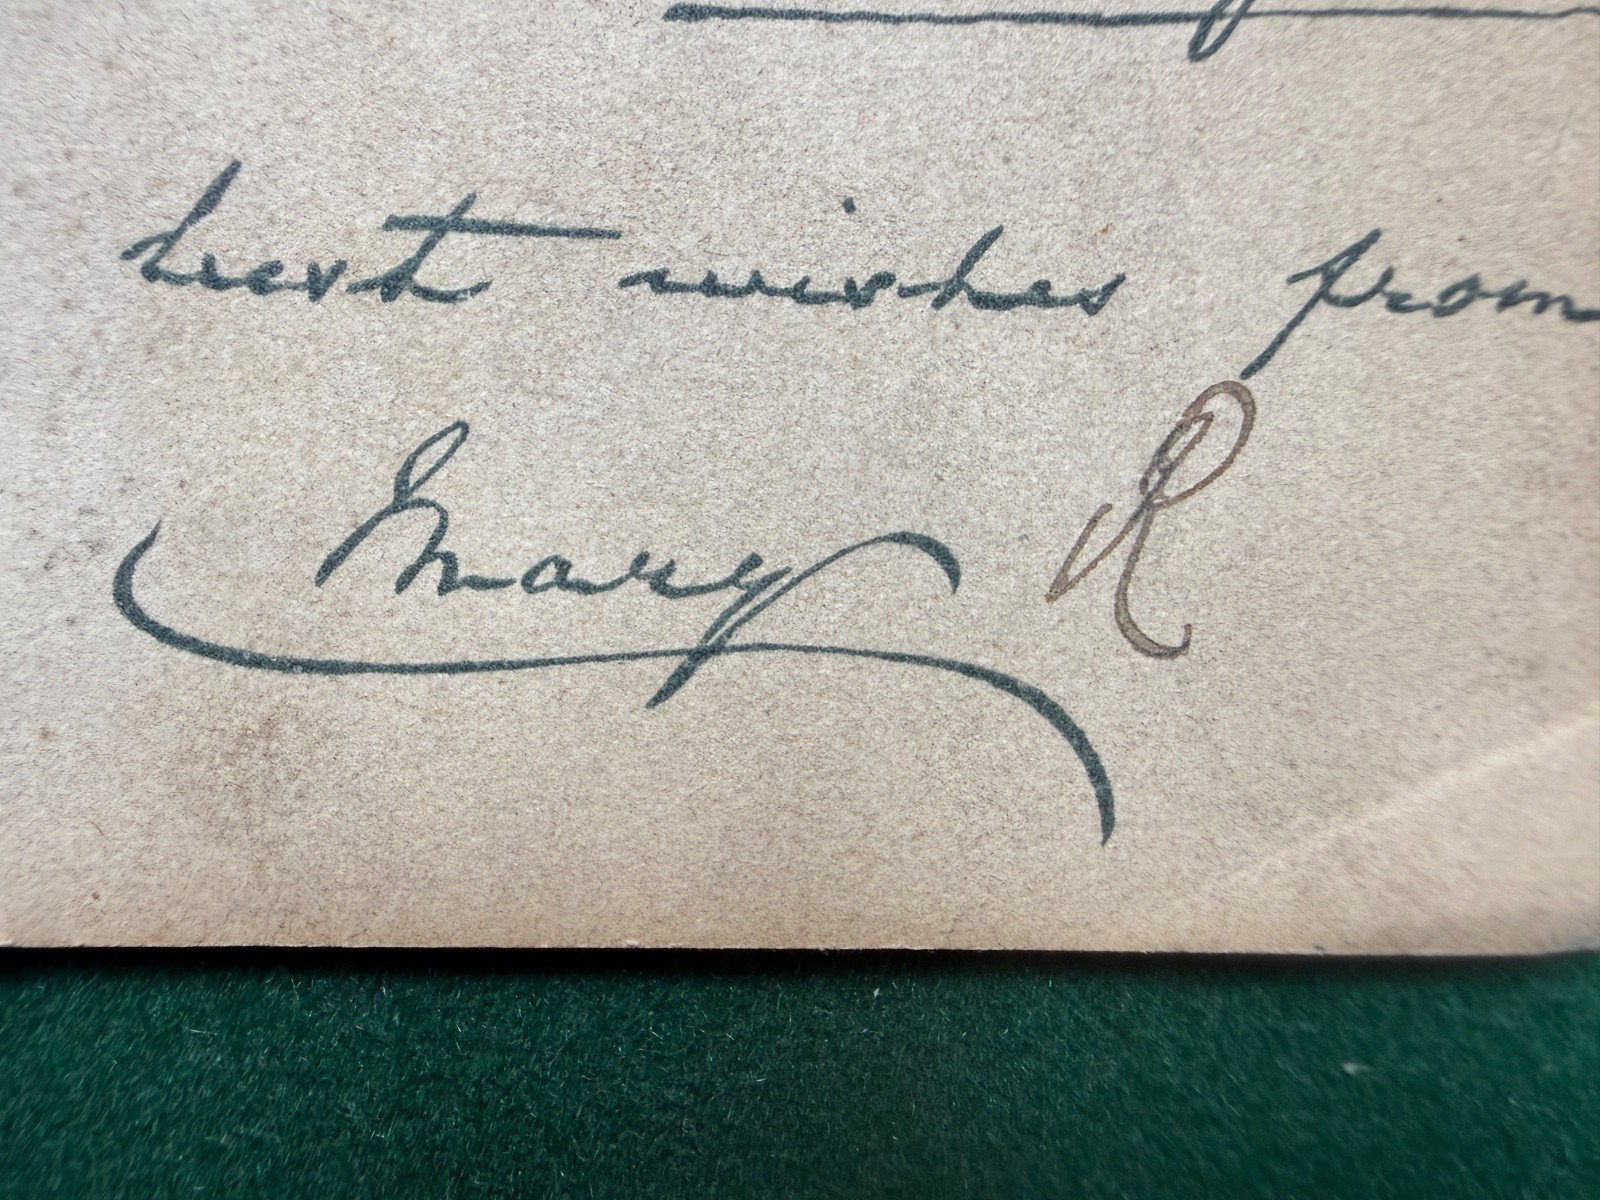 best wishes from
Mary R